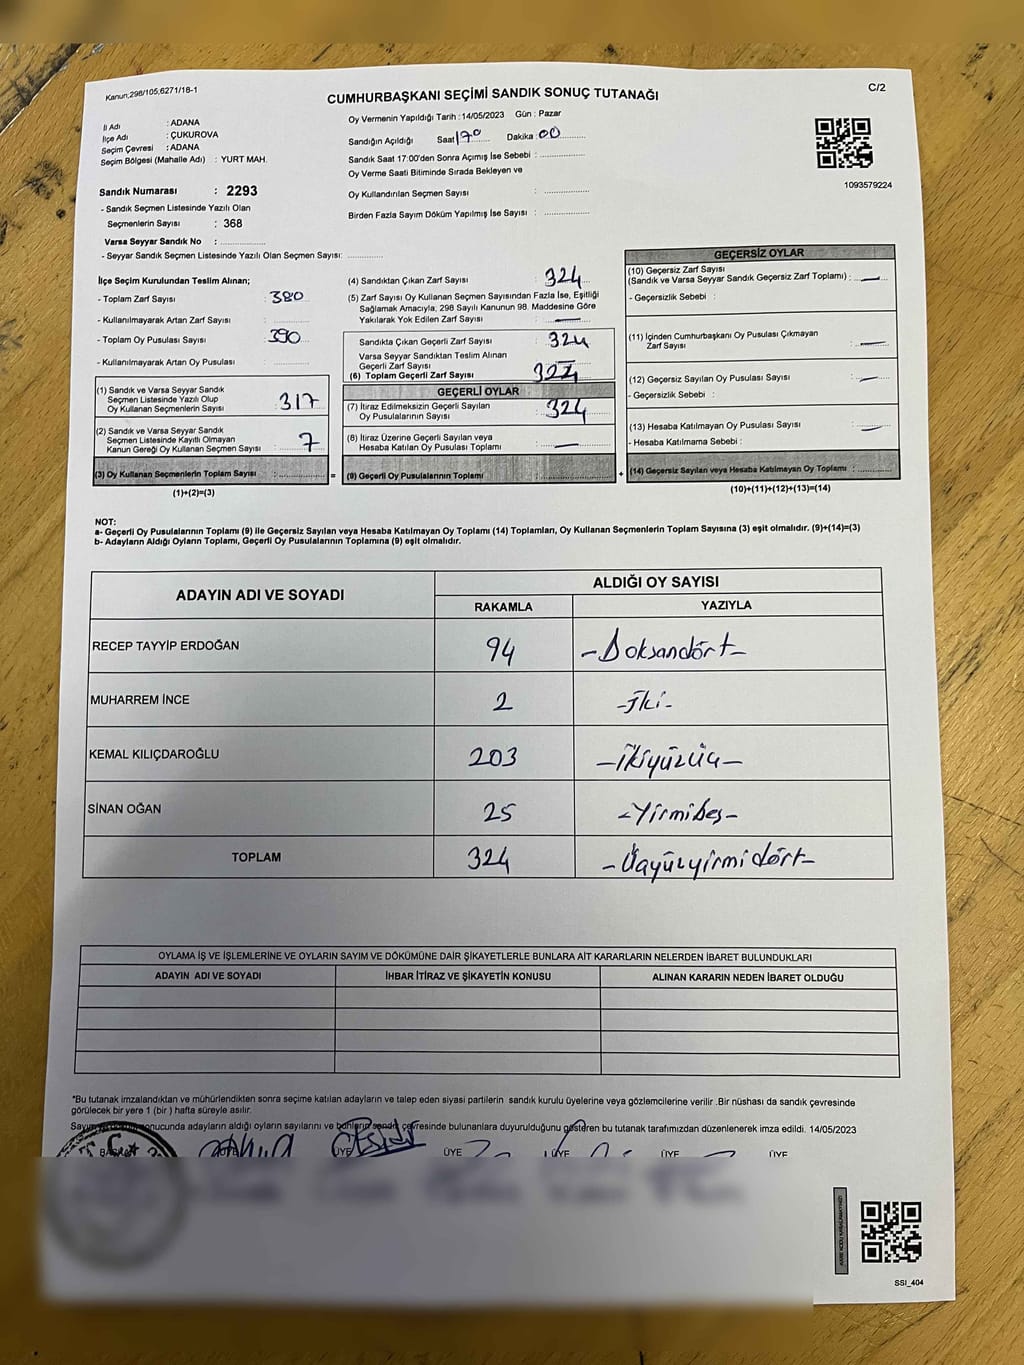 Kanun;298/105,6271/18-1
CUMHURBAŞKANI SEÇİMİ SANDIK SONUÇ TUTANAĞI
C/2
İl Adı : ADANA
İlçe Adı : ÇUKUROVA
Seçim Çevresi : ADANA
Seçim Bölgesi (Mahalle Adı) : YURT MAH.
Oy Vermenin Yapıldığı Tarih : 14/05/2023 Gün : Pazar
Sandığın Açıldığı Saat 17⁰ Dakika : 00
Sandık Saat 17:00'den Sonra Açımış İse Sebebi :
Oy Verme Saati Bitiminde Sırada Bekleyen ve
Oy Kullandırılan Seçmen Sayısı :
Birden Fazla Sayım Döküm Yapılmış İse Sayısı :
1093579224
Sandık Numarası : 2293
- Sandık Seçmen Listesinde Yazılı Olan
Seçmenlerin Sayısı : 368
Varsa Seyyar Sandık No :
- Seyyar Sandık Seçmen Listesinde Yazılı Olan Seçmen Sayısı:
İlçe Seçim Kurulundan Teslim Alınan;
- Toplam Zarf Sayısı : 380
- Kullanılmayarak Artan Zarf Sayısı :
- Toplam Oy Pusulası Sayısı : 390
- Kullanılmayarak Artan Oy Pusulası :
(1) Sandık ve Varsa Seyyar Sandık
Seçmen Listesinde Yazılı Olup
Oy Kullanan Seçmenlerin Sayısı : 317
(2) Sandık ve Varsa Seyyar Sandık
Seçmen Listesinde Kayıtlı Olmayan
Kanun Gereği Oy Kullanan Seçmen Sayısı : 7
(3) Oy Kullanan Seçmenlerin Toplam Sayısı :
(1)+(2)=(3)
=
(4) Sandıktan Çıkan Zarf Sayısı : 324
(5) Zarf Sayısı Oy Kullanan Seçmen Sayısından Fazla İse, Eşitliği
Sağlamak Amacıyla, 298 Sayılı Kanunun 98. Maddesine Göre
Yakılarak Yok Edilen Zarf Sayısı : —
Sandıkta Çıkan Geçerli Zarf Sayısı : 324
Varsa Seyyar Sandıktan Teslim Alınan
Geçerli Zarf Sayısı : —
(6) Toplam Geçerli Zarf Sayısı 324
GEÇERLİ OYLAR
(7) İtiraz Edilmeksizin Geçerli Sayılan
Oy Pusulalarının Sayısı : 324
(8) İtiraz Üzerine Geçerli Sayılan veya
Hesaba Katılan Oy Pusulası Toplamı : —
(9) Geçerli Oy Pusulalarının Toplamı :
+
GEÇERSİZ OYLAR
(10) Geçersiz Zarf Sayısı
(Sandık ve Varsa Seyyar Sandık Geçersiz Zarf Toplamı) : —
- Geçersizlik Sebebi :
(11) İçinden Cumhurbaşkanı Oy Pusulası Çıkmayan
Zarf Sayısı : —
(12) Geçersiz Sayılan Oy Pusulası Sayısı : —
- Geçersizlik Sebebi :
(13) Hesaba Katılmayan Oy Pusulası Sayısı : —
- Hesaba Katılmama Sebebi :
(14) Geçersiz Sayılan veya Hesaba Katılmayan Oy Toplamı :
(10)+(11)+(12)+(13)=(14)
NOT:
a- Geçerli Oy Pusulalarının Toplamı (9) ile Geçersiz Sayılan veya Hesaba Katılmayan Oy Toplamı (14) Toplamları, Oy Kullanan Seçmenlerin Toplam Sayısına (3) eşit olmalıdır. (9)+(14)=(3)
b- Adayların Aldığı Oyların Toplamı, Geçerli Oy Pusulalarının Toplamına (9) eşit olmalıdır.
ADAYIN ADI VE SOYADI ALDIĞI OY SAYISI
RAKAMLA YAZIYLA
RECEP TAYYİP ERDOĞAN 94 -Doksandört-
MUHARREM İNCE 2 -İki-
KEMAL KILIÇDAROĞLU 203 -İkiyüzüç-
SİNAN OĞAN 25 -Yirmibeş-
TOPLAM 324 -Üçyüzyirmidört-
OYLAMA İŞ VE İŞLEMLERİNE VE OYLARIN SAYIM VE DÖKÜMÜNE DAİR ŞİKAYETLERLE BUNLARA AİT KARARLARIN NELERDEN İBARET BULUNDUKLARI
ADAYIN ADI VE SOYADI İHBAR İTİRAZ VE ŞİKAYETİN KONUSU ALINAN KARARIN NEDEN İBARET OLDUĞU
*Bu tutanak imzalandıktan ve mühürlendikten sonra seçime katılan adayların ve talep eden siyasi partilerin sandık kurulu üyelerine veya gözlemcilerine verilir .Bir nüshası da sandık çevresinde
görülecek bir yere 1 (bir ) hafta süreyle asılır.
adayların aldığı oyların sayılarını ve bunların sandık çevresinde bulunanlara duyurulduğunu gösteren bu tutanak tarafımızdan düzenlenerek imza edildi. 14/05/2023
ÜYE ÜYE ÜYE ÜYE ÜYE ÜYE
SSI_404